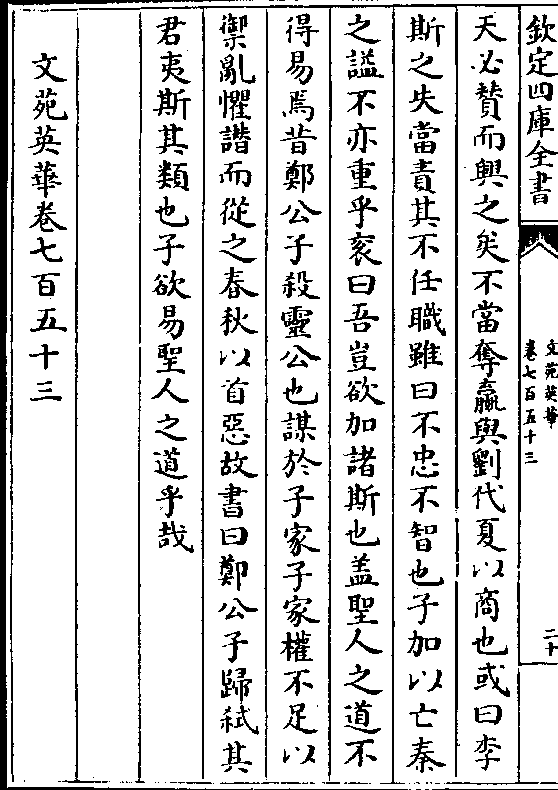 欽定四庫全書
文苑英華
卷七百五十三
二十
天必賛而興之矣不當奪嬴與劉代夏以商也或曰李
斯之失當責其不任職雖曰不忠不智也子加以亡秦
之諡不亦重乎衮曰吾豈欲加諸斯也盖聖人之道不
得易焉昔鄭公子殺靈公也謀於子家子家權不足以
禦亂懼譖而從之春秋以首惡故書曰鄭公子歸弑其
君夷斯其類也子欲易聖人之道乎哉
文苑英華卷七百五十三